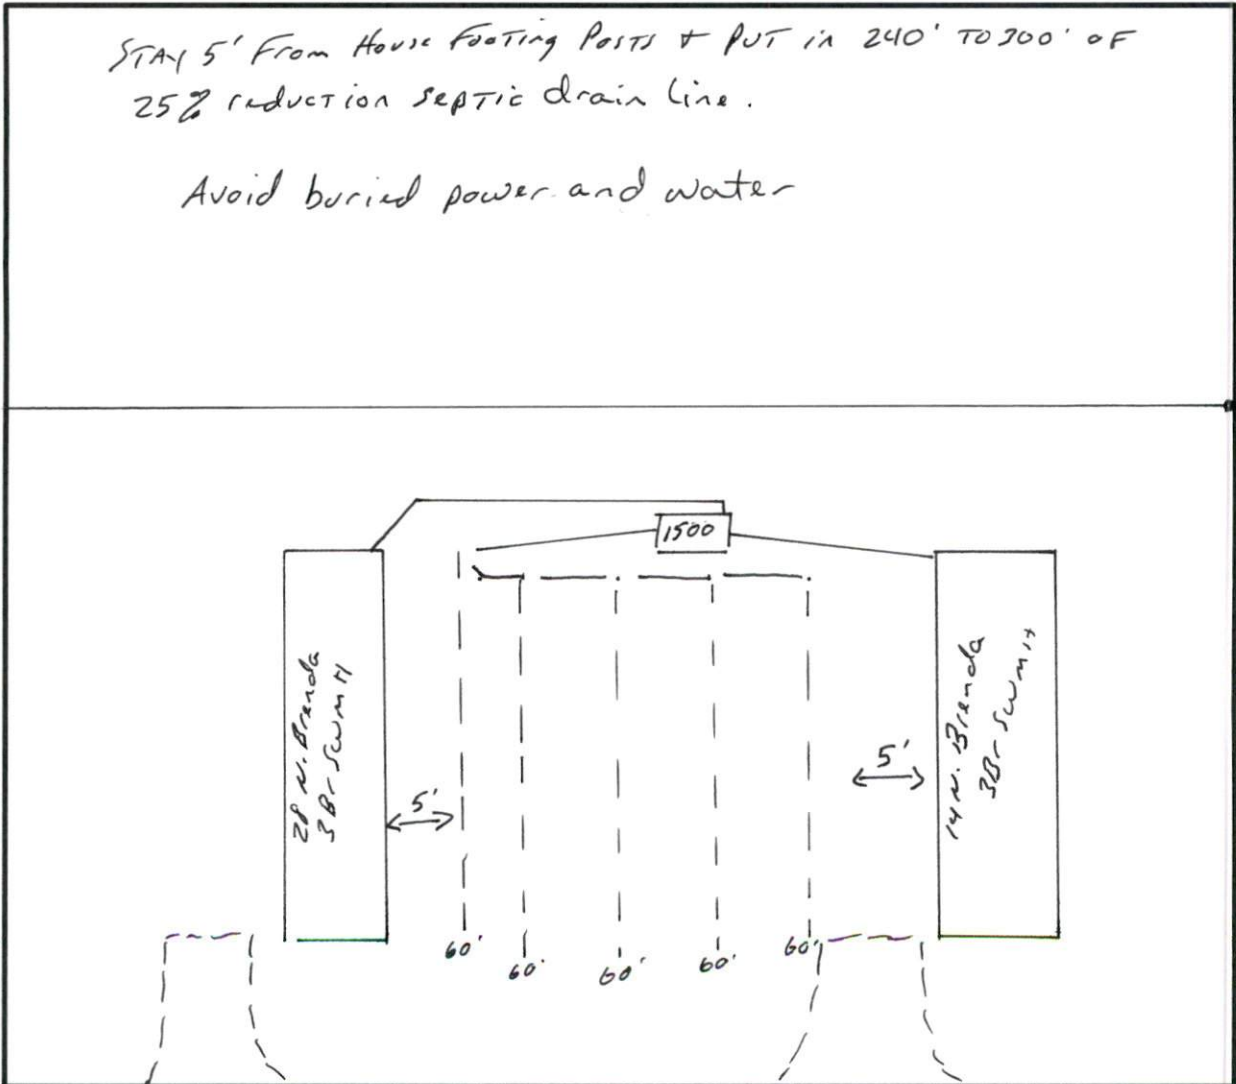 STAY 5' From House Footing Posts & PUT in 240' TO 300' OF
25% reduction septic drain line.
Avoid buried power and water
1500
28 N. Brenda
3 Br SWMH
5'
5'
14 N. Brenda
3Br SWMH
60'
60'
60'
60'
60'